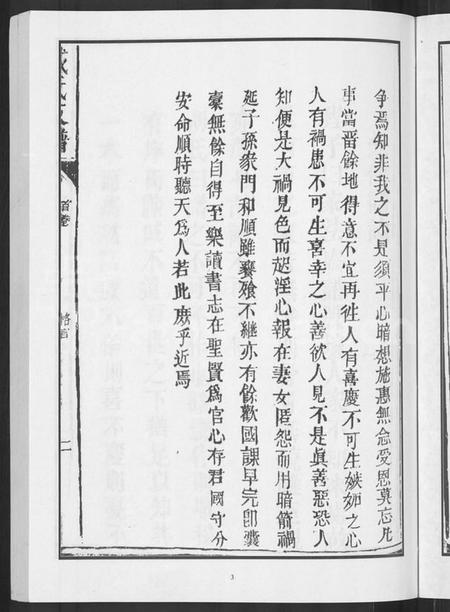 争焉知非我之不是須平心暗想施惠無念愛恩莫忘凡
事當畱餘地得意不宜再徃人有喜慶不可生嫉妒之心
人有禍患不可生喜幸之心善欲人見不是眞善惡恐人
知便是大禍見色而起淫心報在妻女匿怨而用暗箭禍
延子孫家門和順雖饔飧不継亦有餘歡國課早完卽囊
橐無餘自得至樂讀書志在聖賢爲官心存君國守分
安命順時聽天爲人若此庶乎近焉
氏支譜
首卷
格言
二
3